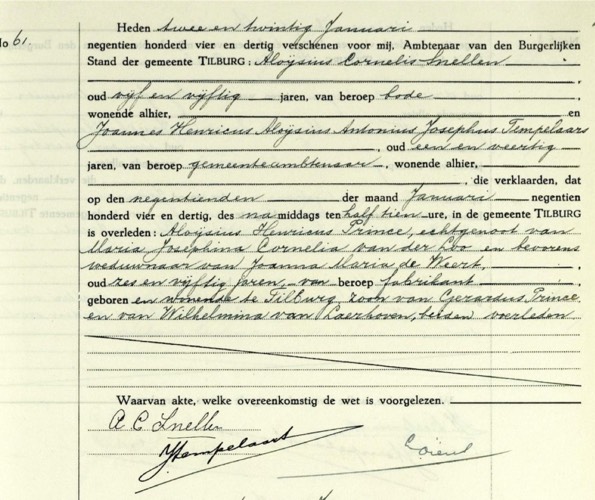 Heden twee en twintig Januari
No 61.
negentien honderd vier en dertig verschenen voor mij, Ambtenaar van den Burgerlijken
Stand der gemeente TILBURG: Aloÿsius Cornelis Snellen
oud vijf en vijftig jaren, van beroep bode
wonende alhier, en
Joannes Henricus Aloÿsius Antonius Josephus Tempelaars
, oud een en veertig
jaren, van beroep gemeenteambtenaar, wonende alhier,
, die verklaarden, dat
op den negentienden der maand Januari negentien
honderd vier en dertig, des namiddags ten half tien ure, in de gemeente TILBURG
is overleden: Aloÿsius Henricus Prince, echtgenoot van
Maria Josephina Cornelia van der Loo en bevorens
weduwnaar van Joanna Maria de Weert,
oud zes en vijftig jaren, van beroep fabrikant,
geboren en wonende te Tilburg, zoon van Gerardus Prince
en van Wilhelmina van Laerhoven, beiden overleden
Waarvan akte, welke overeenkomstig de wet is voorgelezen.
A C Snellen